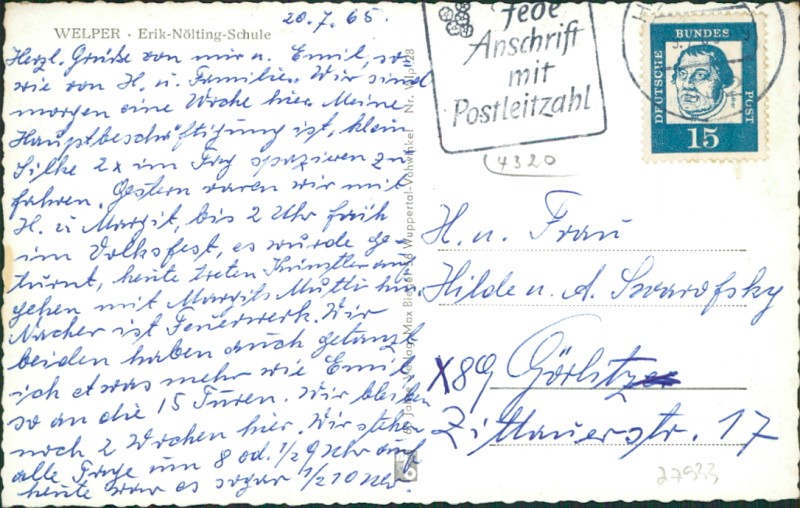 20.7.65.
WELPER · Erik-Nölting-Schule
Herzl. Grüße von mir u. Emil, so
wie von H. u. Familie. Wir sind
morgen eine Woche hier. Meine
Hauptbeschäftigung ist, klein
Silke 2x im Tag spazieren zu
fahren. Gestern waren wir mit
H. u Margit, bis 2 Uhr früh
im Volksfest, es wurde ge-
turnt, heute treten Künstler auf
gehen mit Margits Mutti hin.
Nacher ist Feuerwerk. Wir
beiden haben auch getanzt
ich etwas mehr wie Emil,
so an die 15 Turen. Wir bleiben
noch 2 Wochen hier. Wir stehen
alle Tage um 8 od. 1/2 9 Uhr auf
heute war es sogar 1/2 10 Uhr.
Jahre Verlag Max Biegel 56 Wuppertal-Vohwinkel Nr.
Jede
Anschrift
mit
Postleitzahl
4320
DEUTSCHE BUNDES POST
15
H. u. Frau
Hilde u. A. Swarofsky
X89 Görlitz
Zittauerstr. 17
27933